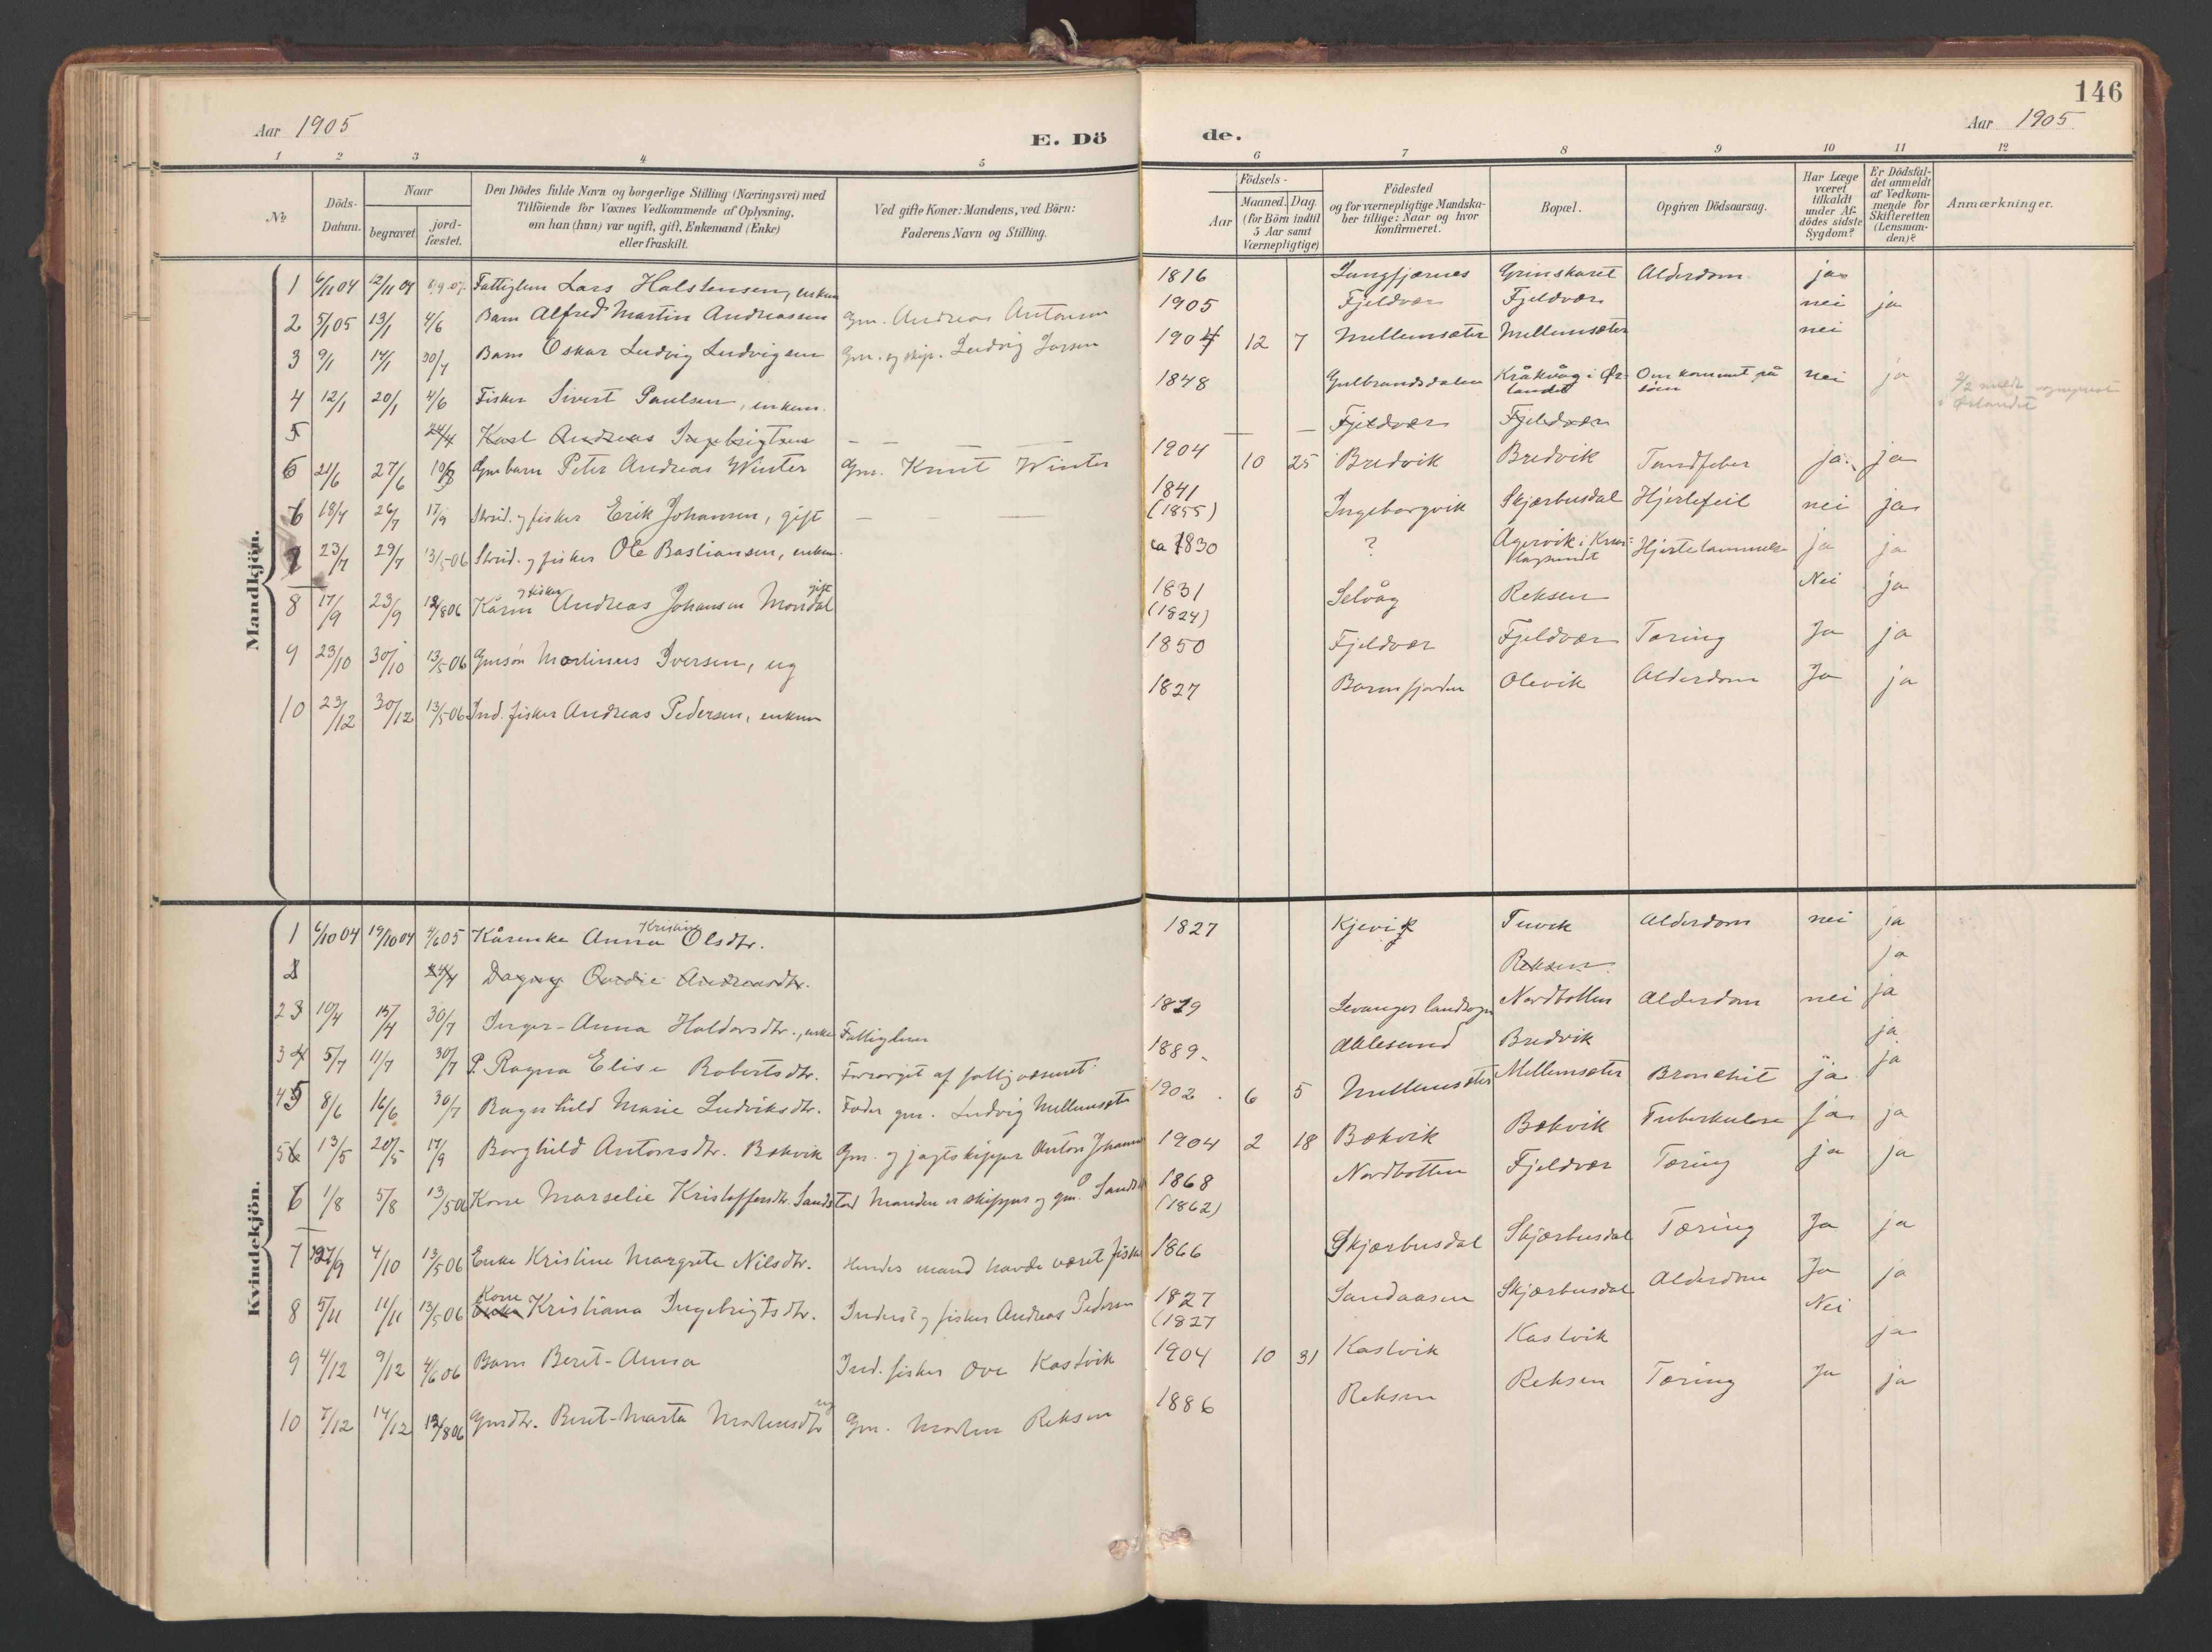 146
Aar 1905
E. Dö
de.
Aar 1905
1 2 3 4 5 6 7 8 9 10 11 12
No
Döds-
Datum.
Naar
begravet
jord-
fæstet.
Den Dödes fulde Navn og borgerlige Stilling (Næringsvei) med
Tilföiende for Voxnes Vedkommende af Oplysning,
om han (hun) var ugift, gift, Enkemand (Enke)
eller fraskilt.
Ved gifte Koner: Mandens, ved Börn:
Faderens Navn og Stilling.
Födsels-
Aar
Maaned. Dag.
(for Börn indtil
5 Aar samt
Værnepligtige)
Födested
og for værnepligtige Mandska-
ber tillige: Naar og hvor
konfirmeret.
Bopæl.
Opgiven Dödsaarsag.
Har Læge
været
tilkaldt
under Af-
dödes sidste
Sygdom?
Er Dödsfal-
det anmeldt
af Vedkom-
mende for
Skifteretten
(Lensman-
den)?
Anmærkninger.
Mandkjön.
1 6/11 04 12/11 04 Fattiglem Lars Halstensen, enkem 1816 Grinskaret Alderdom ja
2 5/1 05 13/1 4/6 Barn Alfred Martin Andreassen Gm. Andreas Antonsen 1905 Fjeldvær Fjeldvær nei ja
3 9/1 14/1 30/7 Barn Oskar Ludvig Ludvigsen Gm. og skip. Ludvig Larsen 1904 12 7 Mellemsæter Mellemsæter nei
4 12/1 20/1 4/6 Fisker Sivert Paulsen, enkem. 1848 Gulbrandsdalen Kråkvåg i Ør-
landet Omkommet på
sjøen nei ja
5 24/4 Karl Andreas Ingebrigtsen — — — Fjeldvær Fjeldvær
6 21/6 27/6 Gmbarn Peter Andreas Winter Gm. Knut Winter 1904 10 25 Bredvik Bredvik Tandfeber ja ja
6 18/7 26/7 17/9 Strid. og fisker Erik Johansen, gift — — — 1841
(1855) Ingeborgvik Skjærbusdal Hjertefeil nei ja
7 23/7 29/7 13/5 06 Strid. og fisker Ole Bastiansen, enkem. ca 1830 ? Agervik i Kvæn-
Hjertelammelse ja ja
8 17/9 23/9 12/8 06 Kårm og fisker Andreas Johansen Mondal gift 1831
(1824) Selvåg Reksen Nei ja
9 23/10 30/10 13/5 06 Gmsøn Martinus Iversen, ug 1850 Fjeldvær Fjeldvær Tæring Ja ja
10 23/12 30/12 13/5 06 Ind. fisker Andreas Pedersen, enkem 1827 Barmfjorden Olevik Alderdom Ja ja
Kvindekjön.
1 6/10 04 19/10 04 4/6 05 Kårenke Anna Kristine Olsdtr. 1827 Kjevik Tuvik Alderdom nei ja
2 24/4 Dagny Ovidie Andreasdtr. Reksen ja
2 3 10/4 15/4 30/7 Inger-Anna Haldorsdtr., enke Fattiglem 1829 Levanger landsogn Nordbotten Alderdom nei ja
3 4 5/7 11/7 30/7 P. Ragna Elise Robertsdtr. Forsørget af fattigvæsenet 1889 Aalesund Bredvik ja
4 5 8/6 16/6 30/7 Ragnhild Marie Ludviksdtr. Fader gm. Ludvig Mellemsæter 1902 6 5 Mellemsæter Mellemsæter Bronchit ja ja
5 6 13/5 20/5 17/9 Borghild Antonsdtr. Bekvik Gm. og jagtskipper Anton Johansen 1904 2 18 Bekvik Bekvik Tuberkulose ja ja
6 1/8 5/8 13/5 06 Kone Marselie Kristoffersdtr. Sandstad Manden er skipper og gm. 1868
(1862) Nordbotten Fjeldvær Tæring ja ja
7 27/9 4/10 13/5 06 Enke Kristine Margrete Nilsdtr. Hendes mand havde været fisker 1866 Skjærbusdal Skjærbusdal Tæring Ja ja
8 5/11 11/11 13/5 06 Kone Enke Kristiana Ingebrigtsdtr. Inderst og fisker Andreas Pedersen 1827
(1827 Sandaasen Skjærbusdal Alderdom Ja ja
9 4/12 9/12 4/6 06 Barn Berit-Anna Ind. fisker Ove Kastvik 1904 10 31 Kastvik Kastvik Nei ja
10 7/12 14/12 12/8 06 Gmdtr. Berit-Marta Mortensdtr ug Gm. Morten Reksen 1886 Reksen Reksen Tæring Ja ja